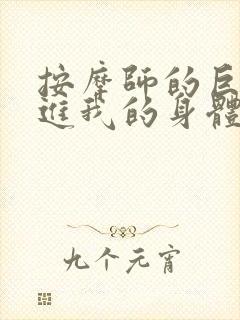 按摩師的巨
進我的身體
九个元宵